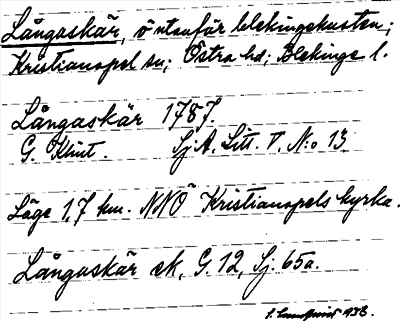 Långaskär, ö utanför blekingekusten;
Kristianopel sn; Östra hd; Blekinge l.
Långaskär 1787.
G. Klint. SjA. Litt. V. N:o 13
Läge 1,7 km. NNÖ Kristianopels kyrka.
Långaskär ek, G 12, Sj. 65a.
1938.